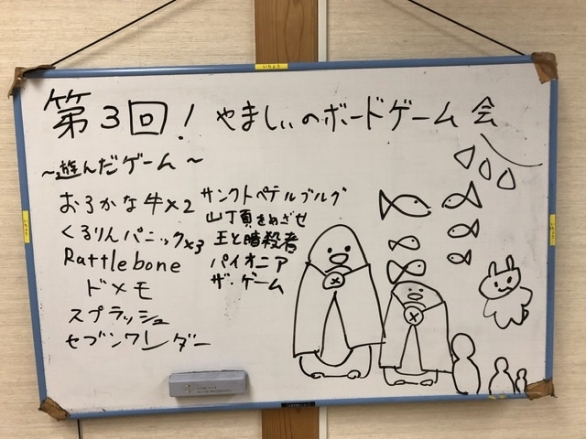 第3回! やましぃのボードゲーム会
~遊んだゲーム~
おろかな牛×2
くるりんパニック×3
Rattlebone
ドメモ
スプラッシュ
セブンワンダー
サンクトペテルブルグ
山頂をめざせ
王と暗殺者
パイオニア
ザ・ゲーム